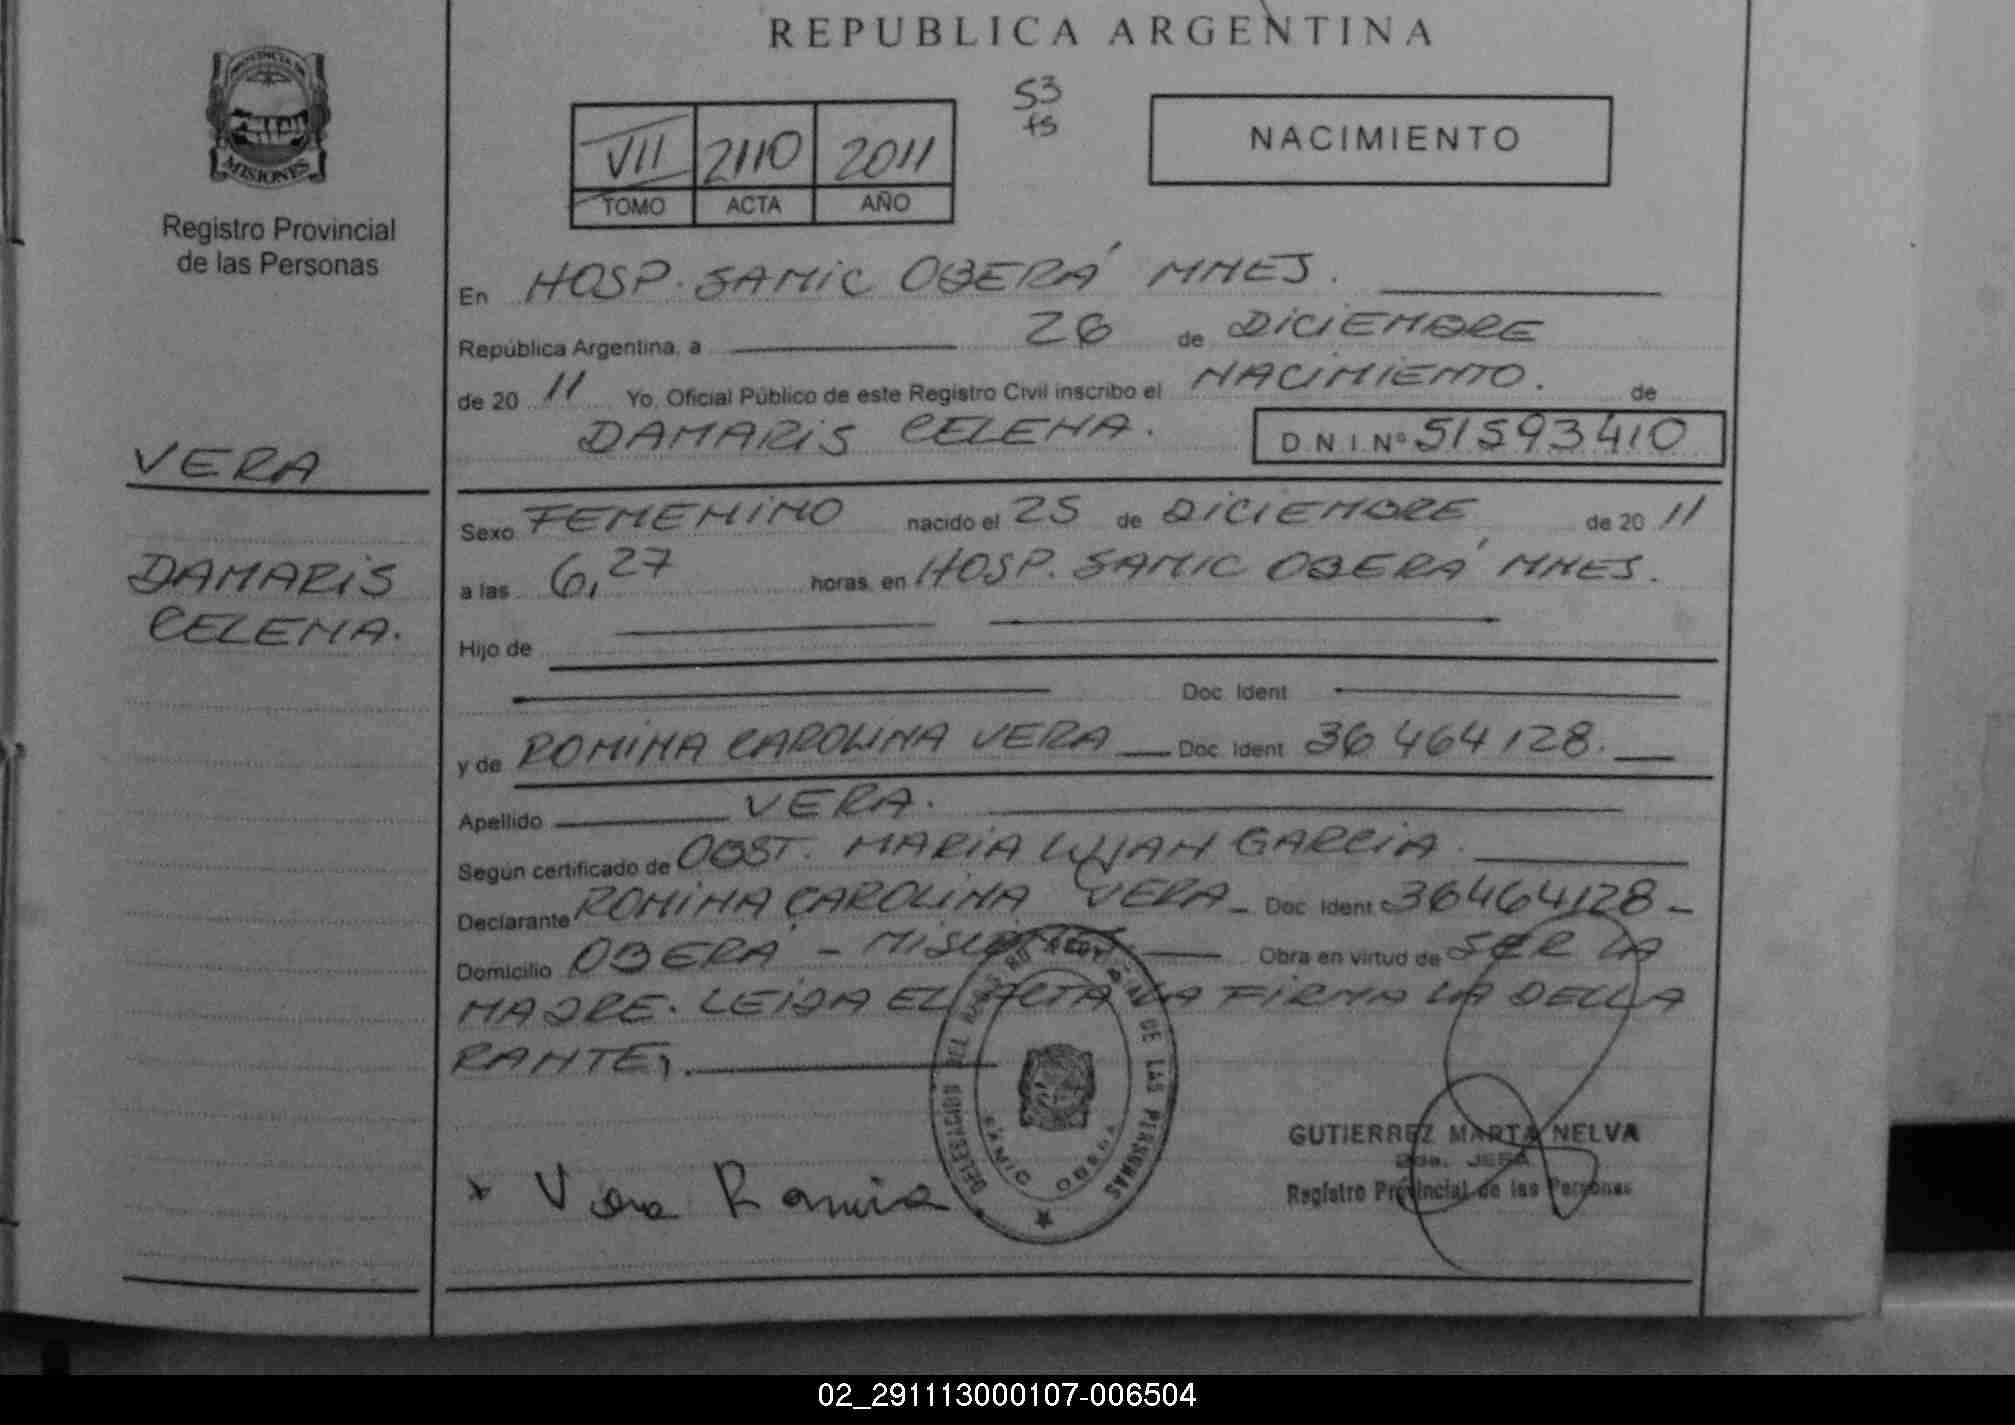 REPUBLICA ARGENTINA
PROVINCIA DE
MISIONES
Registro Provincial
de las Personas
53
fs
VII 2110 2011
TOMO ACTA AÑO
NACIMIENTO
En HOSP. SAMIC OBERÁ MNES.
República Argentina, a 26 de DICIEMBRE
de 20 11 Yo, Oficial Público de este Registro Civil inscribo el NACIMIENTO. de
DAMARIS CELENA. D.N.I. Nº 51593410
VERA
DAMARIS
CELENA.
Sexo FEMENINO nacido el 25 de DICIEMBRE de 20 11
a las 6,27 horas, en HOSP. SAMIC OBERÁ MNES.
Hijo de
Doc. Ident
y de ROMINA CAROLINA VERA Doc. Ident 36 464 128.
Apellido VERA.
Según certificado de OBST. MARIA LUJAN GARCIA.
Declarante ROMINA CAROLINA VERA - Doc. Ident 36464128 -
Domicilio OBERÁ - MISIONES Obra en virtud de SER LA
MADRE. LEIDA EL ACTA LA FIRMA LA DECLA
RANTE,.
x Vera Romina
DELEGACION DEL REGISTRO PROVINCIAL DE LAS PERSONAS
SAMIC OBERA
GUTIERREZ MARTA NELVA
2da. JEFA
Registro Provincial de las Personas
02_291113000107-006504